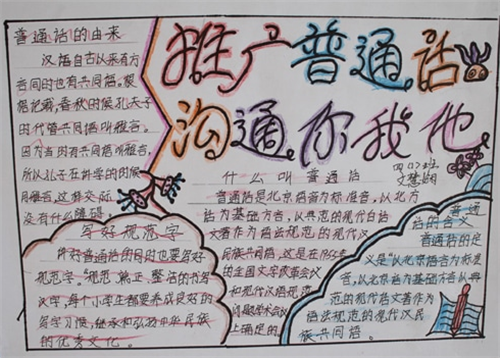 推广普通话
沟通你我他
四(1)班
普通话的由来
汉语自古以来有方
言同时也有共同语。根
据记载,春秋时候孔夫子
时代管共同语叫雅言。
因为当时有共同语叫雅言,
所以孔子在讲学的时候
用雅言,这样交际
没有什么障碍
写好规范字
许好普通话的同时也要写好
规范字。"规范、端正、整洁的书写
汉字,每个小学生都要养成良好的
写字习惯,继承和弘扬中华民族
的优秀文化。
什么叫普通话
普通话是北京语音为标准音,以北方
话为基础方言,以典范的现代白话
文著作为语法规范的现代汉
民族共同语,这是在1955年
的全国文字改革会议
和现代汉语规范
问题学术会议
上确定的
普通
话的含义
普通话的定
义是"以北京语音为标准
音,以北京话为基础方言以典
范的现代语文著作为
语法规范的现代汉民
族共同语。